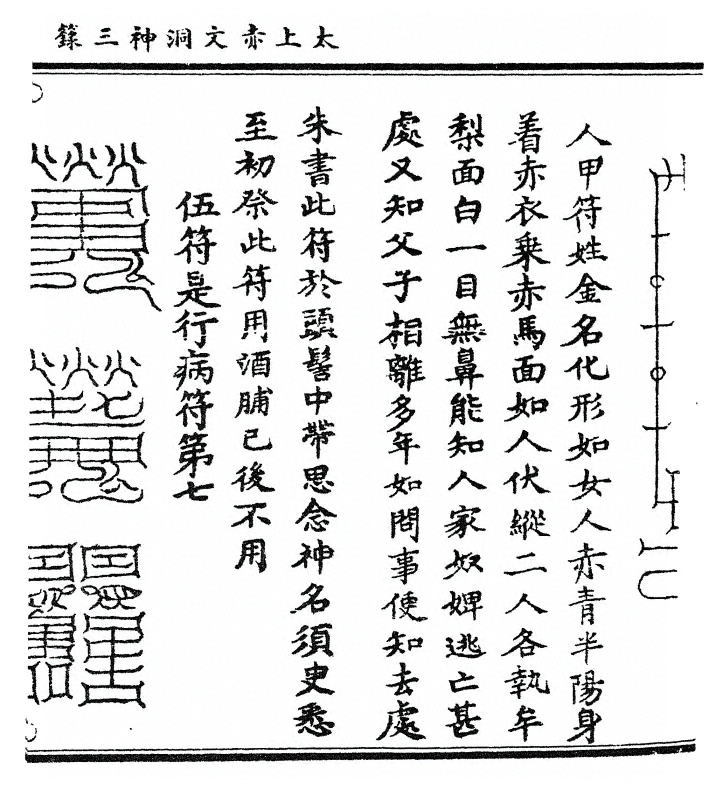 太上赤文洞神三籙
人甲符姓金名化形如女人赤青半陽身
着赤衣乗赤馬面如人伏縱二人各執牟
梨面白一目無鼻能知人家奴婢逃亡甚
處又知父子相離多年如問事便知去處
朱書此符於頭髻中帶思念神名須史悉
至初祭此符用酒脯已後不用
伍符是行病符第七